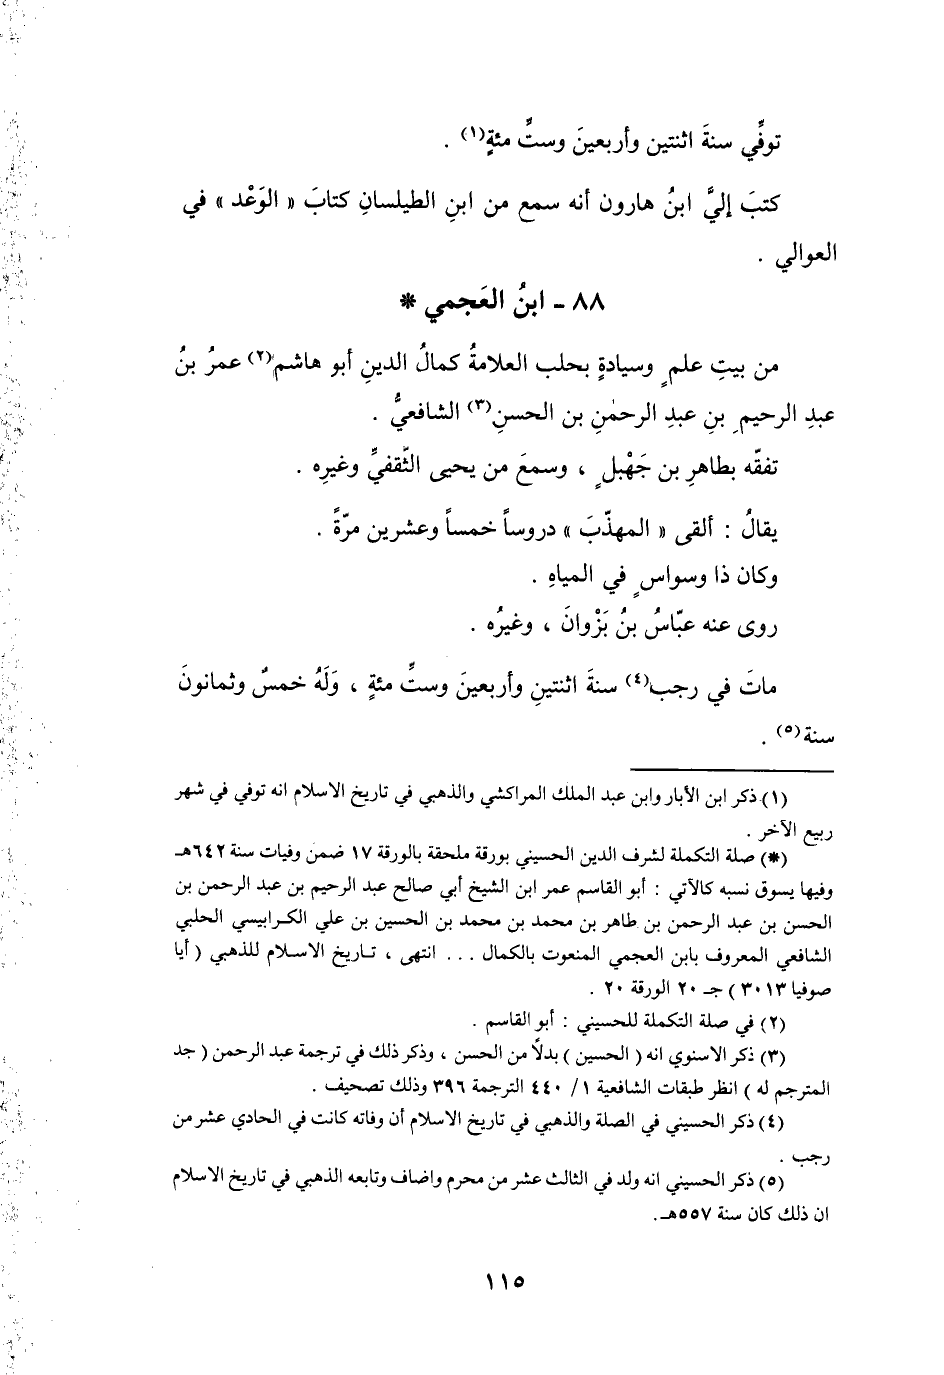 توفِّي سنةَ اثنتين وأربعينَ وستِّ مئةٍ(١) .
كتبَ إليَّ ابنُ هارون أنه سمع من ابنِ الطيلسانِ كتابَ « الوَعْد » في
العوالي .
٨٨ - ابنُ العَجمي *
من بيتِ علمٍ وسيادةٍ بحلب العلامةُ كمالُ الدينِ أبو هاشم(٢) عمرُ بنُ
عبدِ الرحيمِ بنِ عبدِ الرحمٰنِ بن الحسنِ(٣) الشافعيُّ .
تفقّه بطاهرِ بن جَهْبلٍ ، وسمعَ من يحيى الثّقفيِّ وغيرِه .
يقالُ : ألقى « المهذّبَ » دروساً خمساً وعشرين مرّةً .
وكان ذا وسواسٍ في المياهِ .
روى عنه عبّاسُ بنُ بَزْوانَ ، وغيرُه .
ماتَ في رجب(٤) سنةَ اثنتينِ وأربعينَ وستِّ مئةٍ ، وَلَهُ خمسٌ وثمانونَ
سنة(٥) .
(١) ذكر ابن الأبار وابن عبد الملك المراكشي والذهبي في تاريخ الاسلام انه توفي في شهر
ربيع الآخر .
(*) صلة التكملة لشرف الدين الحسيني بورقة ملحقة بالورقة ١٧ ضمن وفيات سنة ٦٤٢هـ
وفيها يسوق نسبه كالآتي : أبو القاسم عمر ابن الشيخ أبي صالح عبد الرحيم بن عبد الرحمن بن
الحسن بن عبد الرحمن بن طاهر بن محمد بن محمد بن الحسين بن علي الكرابيسي الحلبي
الشافعي المعروف بابن العجمي المنعوت بالكمال ... انتهى ، تاريخ الاسلام للذهبي ( أيا
صوفيا ٣٠١٣ ) جـ ٢٠ الورقة ٢٠ .
(٢) في صلة التكملة للحسيني : أبو القاسم .
(٣) ذكر الاسنوي انه ( الحسين ) بدلاً من الحسن ، وذكر ذلك في ترجمة عبد الرحمن ( جد
المترجم له ) انظر طبقات الشافعية ١/ ٤٤٠ الترجمة ٣٩٦ وذلك تصحيف .
(٤) ذكر الحسيني في الصلة والذهبي في تاريخ الاسلام أن وفاته كانت في الحادي عشر من
رجب .
(٥) ذكر الحسيني انه ولد في الثالث عشر من محرم واضاف وتابعه الذهبي في تاريخ الاسلام
ان ذلك كان سنة ٥٥٧هـ.
١١٥